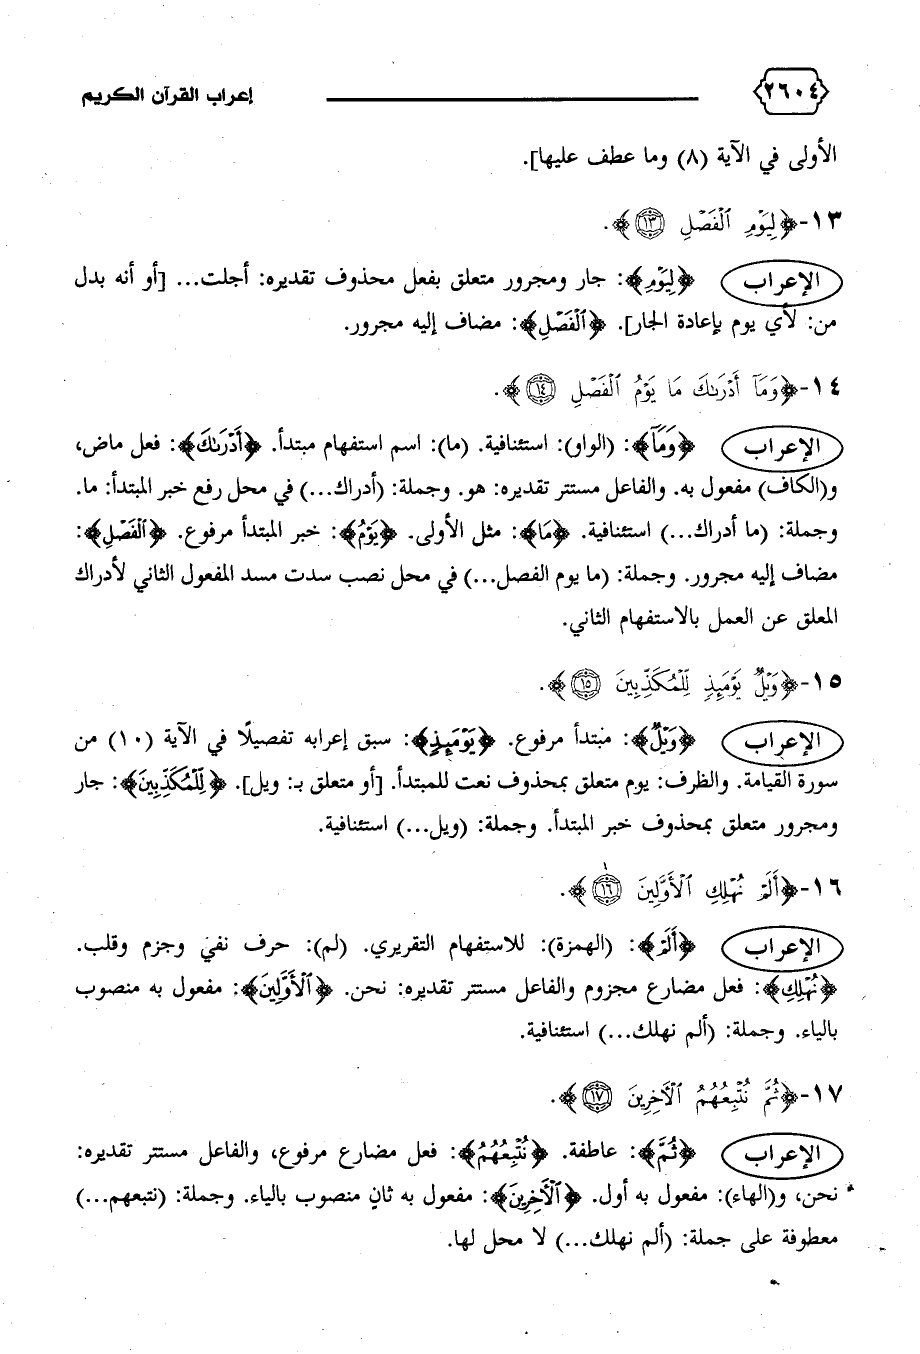 ٢٦٠٤ إعراب القرآن الكريم
الأولى في الآية (٨) وما عطف عليها].
١٣-﴿لِيَوْمِ ٱلْفَصْلِ ۝١٣﴾.
الإعراب ﴿لِيَوْمِ﴾: جار ومجرور متعلق بفعل محذوف تقديره: أجلت... [أو أنه بدل
من: لأي يوم بإعادة الجار]. ﴿ٱلْفَصْلِ﴾: مضاف إليه مجرور.
١٤-﴿وَمَآ أَدْرَىٰكَ مَا يَوْمُ ٱلْفَصْلِ ۝١٤﴾.
الإعراب ﴿وَمَآ﴾: (الواو): استئنافية. (ما): اسم استفهام مبتدأ. ﴿أَدْرَىٰكَ﴾: فعل ماض،
و(الكاف) مفعول به. والفاعل مستتر تقديره: هو. وجملة: (أدراك...) في محل رفع خبر المبتدأ: ما.
وجملة: (ما أدراك...) استئنافية. ﴿مَا﴾: مثل الأولى. ﴿يَوْمُ﴾: خبر المبتدأ مرفوع. ﴿ٱلْفَصْلِ﴾:
مضاف إليه مجرور. وجملة: (ما يوم الفصل...) في محل نصب سدت مسد المفعول الثاني لأدراك
المعلق عن العمل بالاستفهام الثاني.
١٥-﴿وَيْلٌ يَوْمَئِذٍ لِّلْمُكَذِّبِينَ ۝١٥﴾.
الإعراب ﴿وَيْلٌ﴾: مبتدأ مرفوع. ﴿يَوْمَئِذٍ﴾: سبق إعرابه تفصيلًا في الآية (١٠) من
سورة القيامة. والظرف: يوم متعلق بمحذوف نعت للمبتدأ. [أو متعلق بـ: ويل]. ﴿لِّلْمُكَذِّبِينَ﴾: جار
ومجرور متعلق بمحذوف خبر المبتدأ. وجملة: (ويل...) استئنافية.
١٦-﴿أَلَمْ نُهْلِكِ ٱلْأَوَّلِينَ ۝١٦﴾.
الإعراب ﴿أَلَمْ﴾: (الهمزة): للاستفهام التقريري. (لم): حرف نفي وجزم وقلب.
﴿نُهْلِكِ﴾: فعل مضارع مجزوم والفاعل مستتر تقديره: نحن. ﴿ٱلْأَوَّلِينَ﴾: مفعول به منصوب
بالياء. وجملة: (ألم نهلك...) استئنافية.
١٧-﴿ثُمَّ نُتْبِعُهُمُ ٱلْأَخِرِينَ ۝١٧﴾.
الإعراب ﴿ثُمَّ﴾: عاطفة. ﴿نُتْبِعُهُمُ﴾: فعل مضارع مرفوع، والفاعل مستتر تقديره:
نحن، و(الهاء): مفعول به أول. ﴿ٱلْأَخِرِينَ﴾: مفعول به ثانٍ منصوب بالياء. وجملة: (نتبعهم...)
معطوفة على جملة: (ألم نهلك...) لا محل لها.